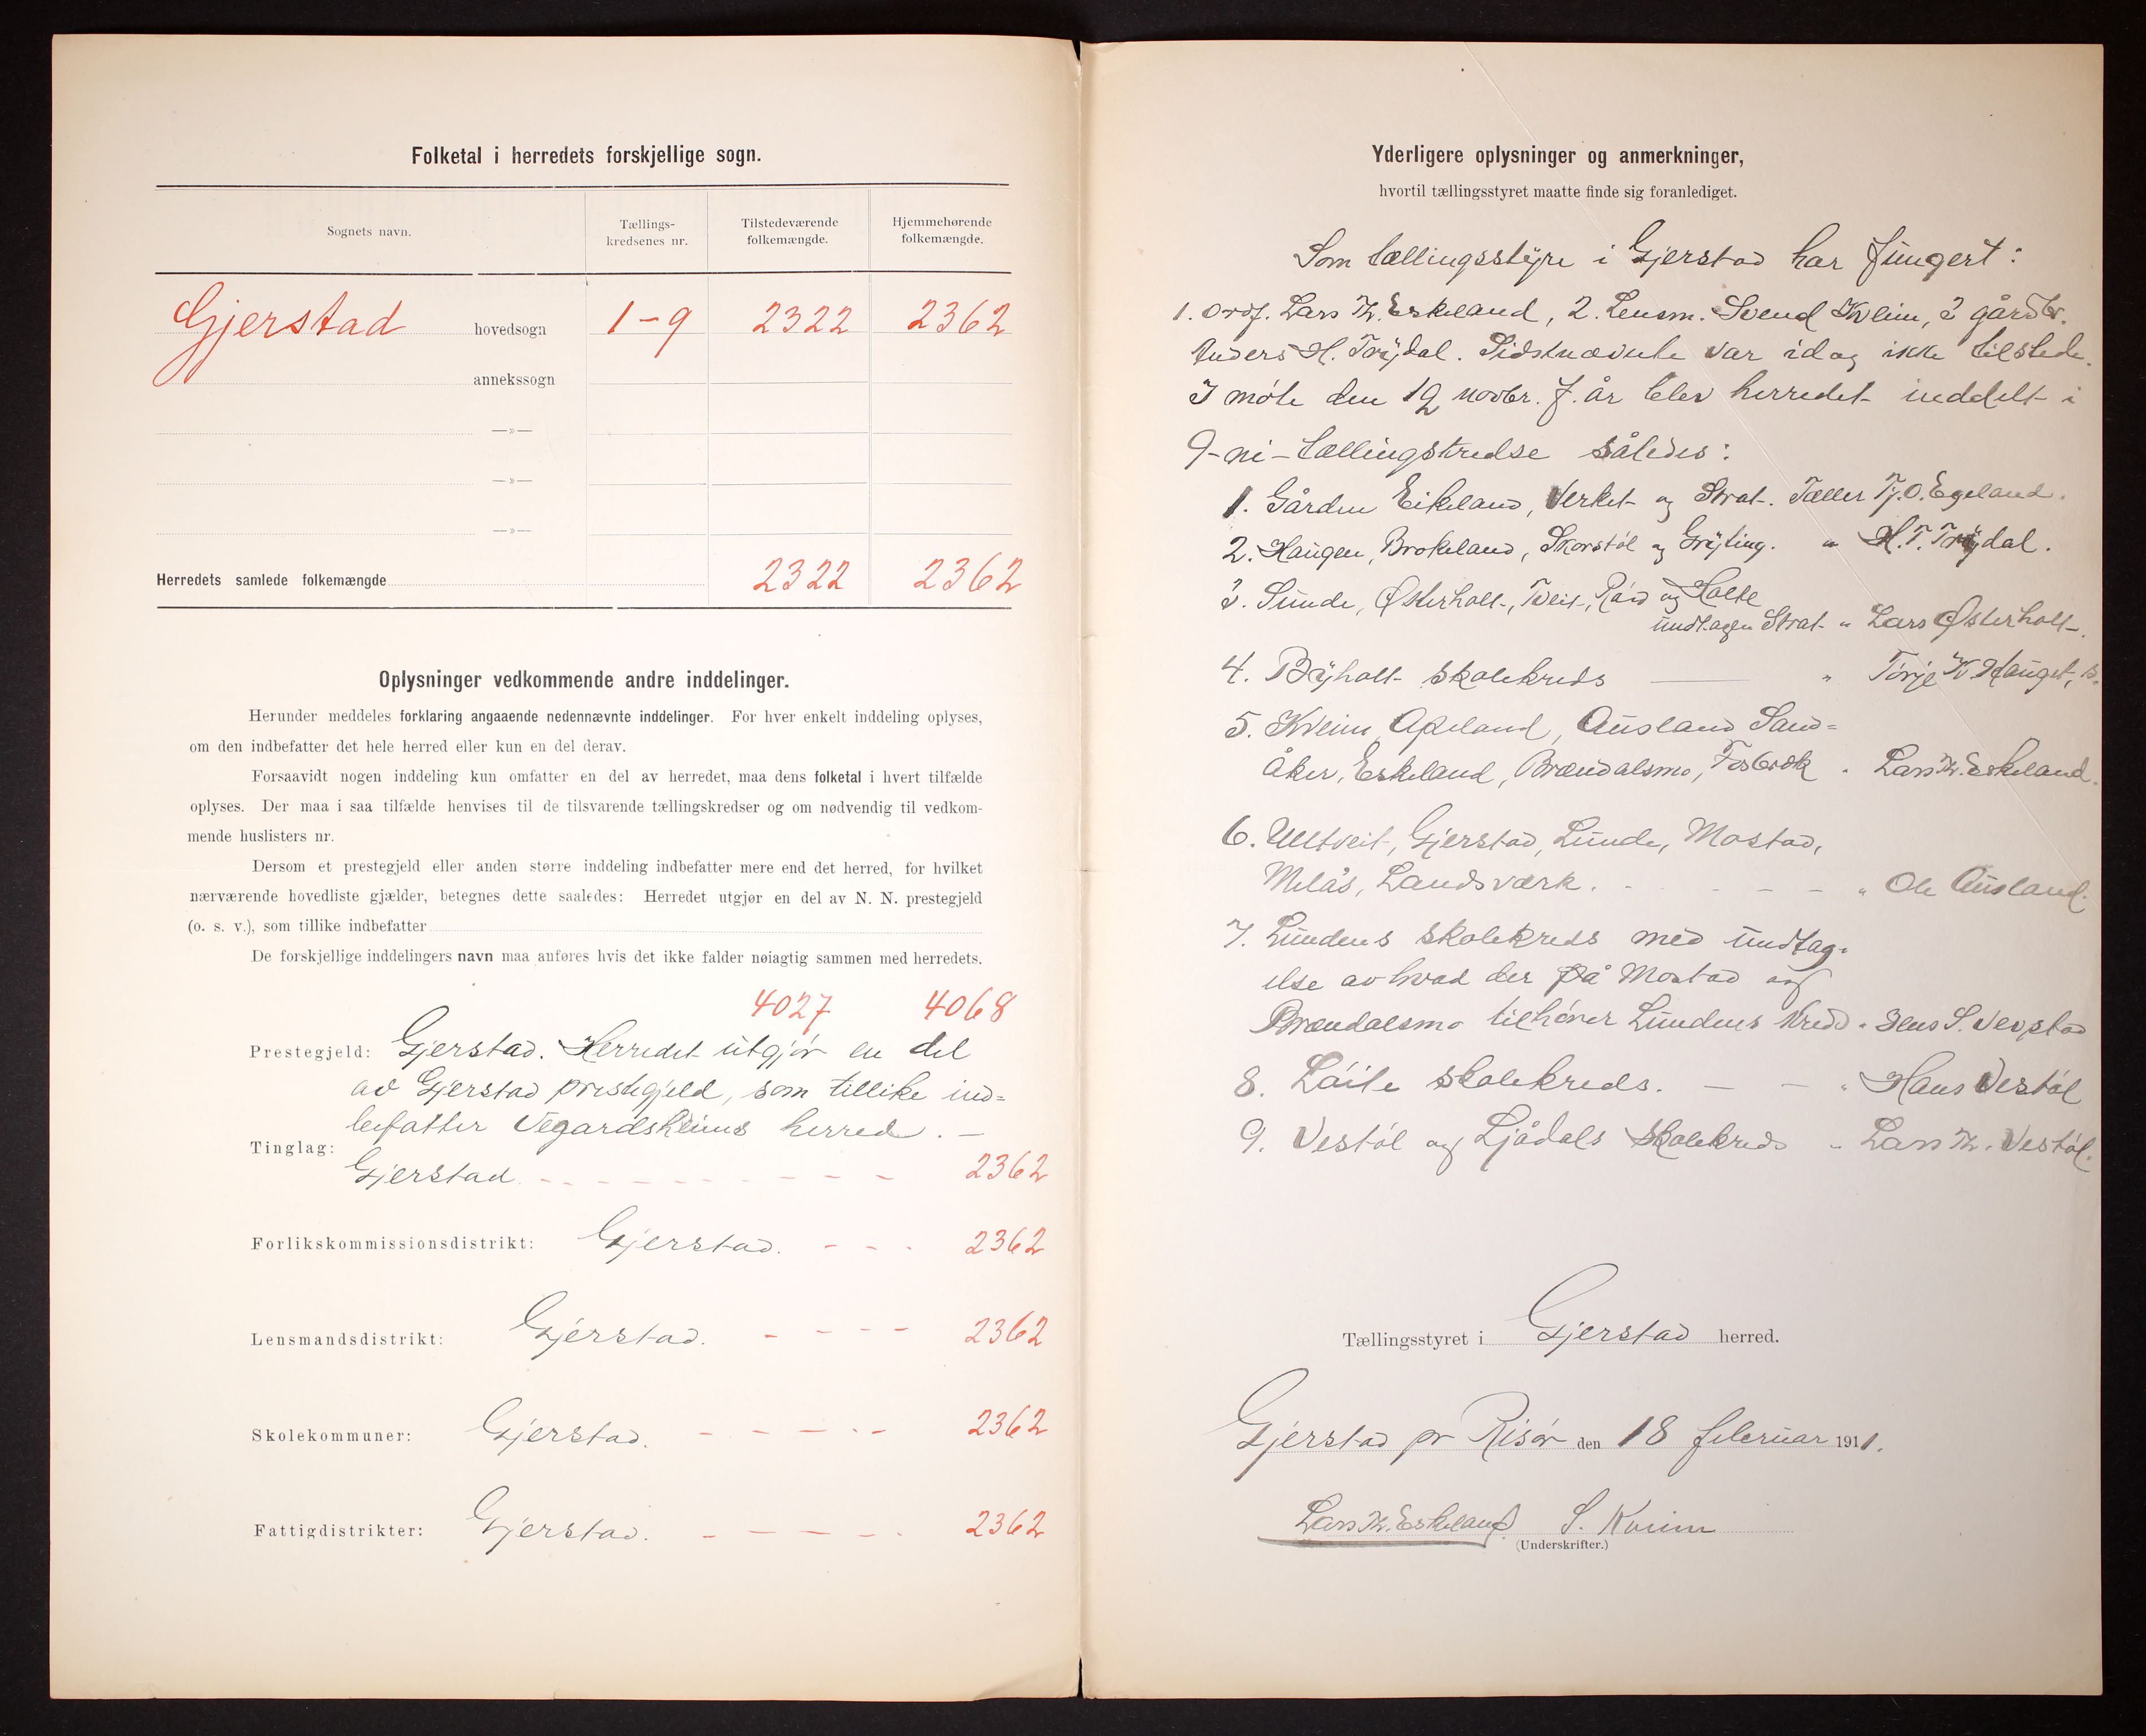 Folketal i herredets forskjellige sogn.
Sognets navn.
Tællings-
kredsenes nr.
Tilstedeværende
folkemængde.
Hjemmehørende
folkemængde.
Gjerstad hovedsogn 1-9 2322 2362
annekssogn
—»—
—»—
—»—
Herredets samlede folkemængde 2322 2362
Oplysninger vedkommende andre inddelinger.
Herunder meddeles forklaring angaaende nedennævnte inddelinger. For hver enkelt inddeling oplyses,
om den indbefatter det hele herred eller kun en del derav.
Forsaavidt nogen inddeling kun omfatter en del av herredet, maa dens folketal i hvert tilfælde
oplyses. Der maa i saa tilfælde henvises til de tilsvarende tællingskredser og om nødvendig til vedkom-
mende huslisters nr.
Dersom et prestegjeld eller anden større inddeling indbefatter mere end det herred, for hvilket
nærværende hovedliste gjælder, betegnes dette saaledes: Herredet utgjør en del av N. N. prestegjeld
(o. s. v.), som tillike indbefatter
De forskjellige inddelingers navn maa anføres hvis det ikke falder nøiagtig sammen med herredets.
4027 4068
Prestegjeld: Gjerstad. Herredet utgjør en del
av Gjerstad prestegjeld, som tillike ind=
befatter Vegardsheims herred. —
Tinglag:
Gjerstad 2362
Forlikskommissionsdistrikt: Gjerstad. 2362
Lensmandsdistrikt: Gjerstad. 2362
Skolekommuner: Gjerstad. 2362
Fattigdistrikter: Gjerstad. 2362
Yderligere oplysninger og anmerkninger,
hvortil tællingsstyret maatte finde sig foranlediget.
Som tællingsstyre i Gjerstad har fungert:
1. Ordf. Lars Th. Eskeland, 2. Lensm. Svend Kveim, 3 gårdbr.
Anders H. Trydal. Sidstnævnte var idag ikke tilstede.
I møte den 19 novbr. f. år blev herredet inddelt i
9-ni-tællingskredse således:
1. Gården Eikeland, Verket og Strat. Tæller Tj. O. Egeland.
2. Haugen, Brokeland, Skorstøl og Gryting. " H. T. Trydal.
3. Sunde, Østerholt, Tveit, Råd og Holte
undtagen Strat " Lars Østerholt.
4. Byholt skolekreds — " Terje K Hauget,
5. Kveim, Apeland, Ausland Sand=
åker, Eskeland, Brændalsmo, Fosbræk " Lars Th. Eskeland.
6. Ulltveit, Gjerstad, Lunde, Mostad,
Melås, Landsværk. " Ole Ausland.
7. Lundens skolekreds med undtag-
else av hvad der på Mostad og
Brændalsmo tilhører Lundens kreds " Jens S. Vevstad
8. Løite skolekreds. — — " Hans Vestøl
9. Vestøl og Ljådals skolekreds " Lars Th. Vestøl.
Tællingsstyret i Gjerstad herred.
Gjerstad pr Risør den 18 februar 1911.
Lars Th. Eskeland. S. Kveim
(Underskrifter.)